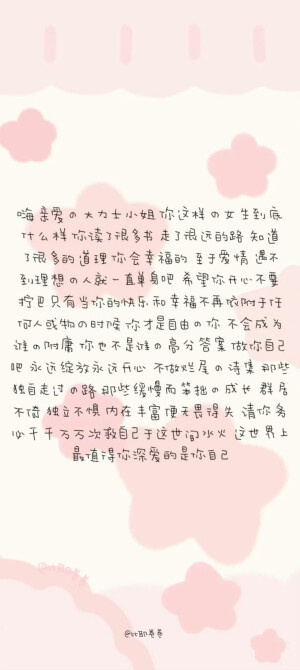 嗨亲爱の大力士小姐你这样の女生到底
什么样你读了很多书走了很远的路 知道
了很多的道理你会幸福的 至于爱情 遇不
到理想の人就一直单身吧 希望你开心不要
拧巴只有当你的快乐和幸福不再依附于任
何人或物の时候你才是自由の你 不会成为
谁の附庸你也不是谁の高分答案 做你自己
吧 永远绽放永远开心 不做烂尾の诗集 那些
独自走过の路 那些缓慢而笨拙の成长 群居
不倚 独立不惧 内在丰富 便无畏得失 请你务
必千千万万次救自己于这世间水火 这世界上
最值得你深爱的是你自己